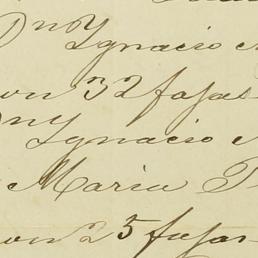 Dn Y Ignacio
on 32 fojas
ny Ignacio
Maria
on 25 fojas